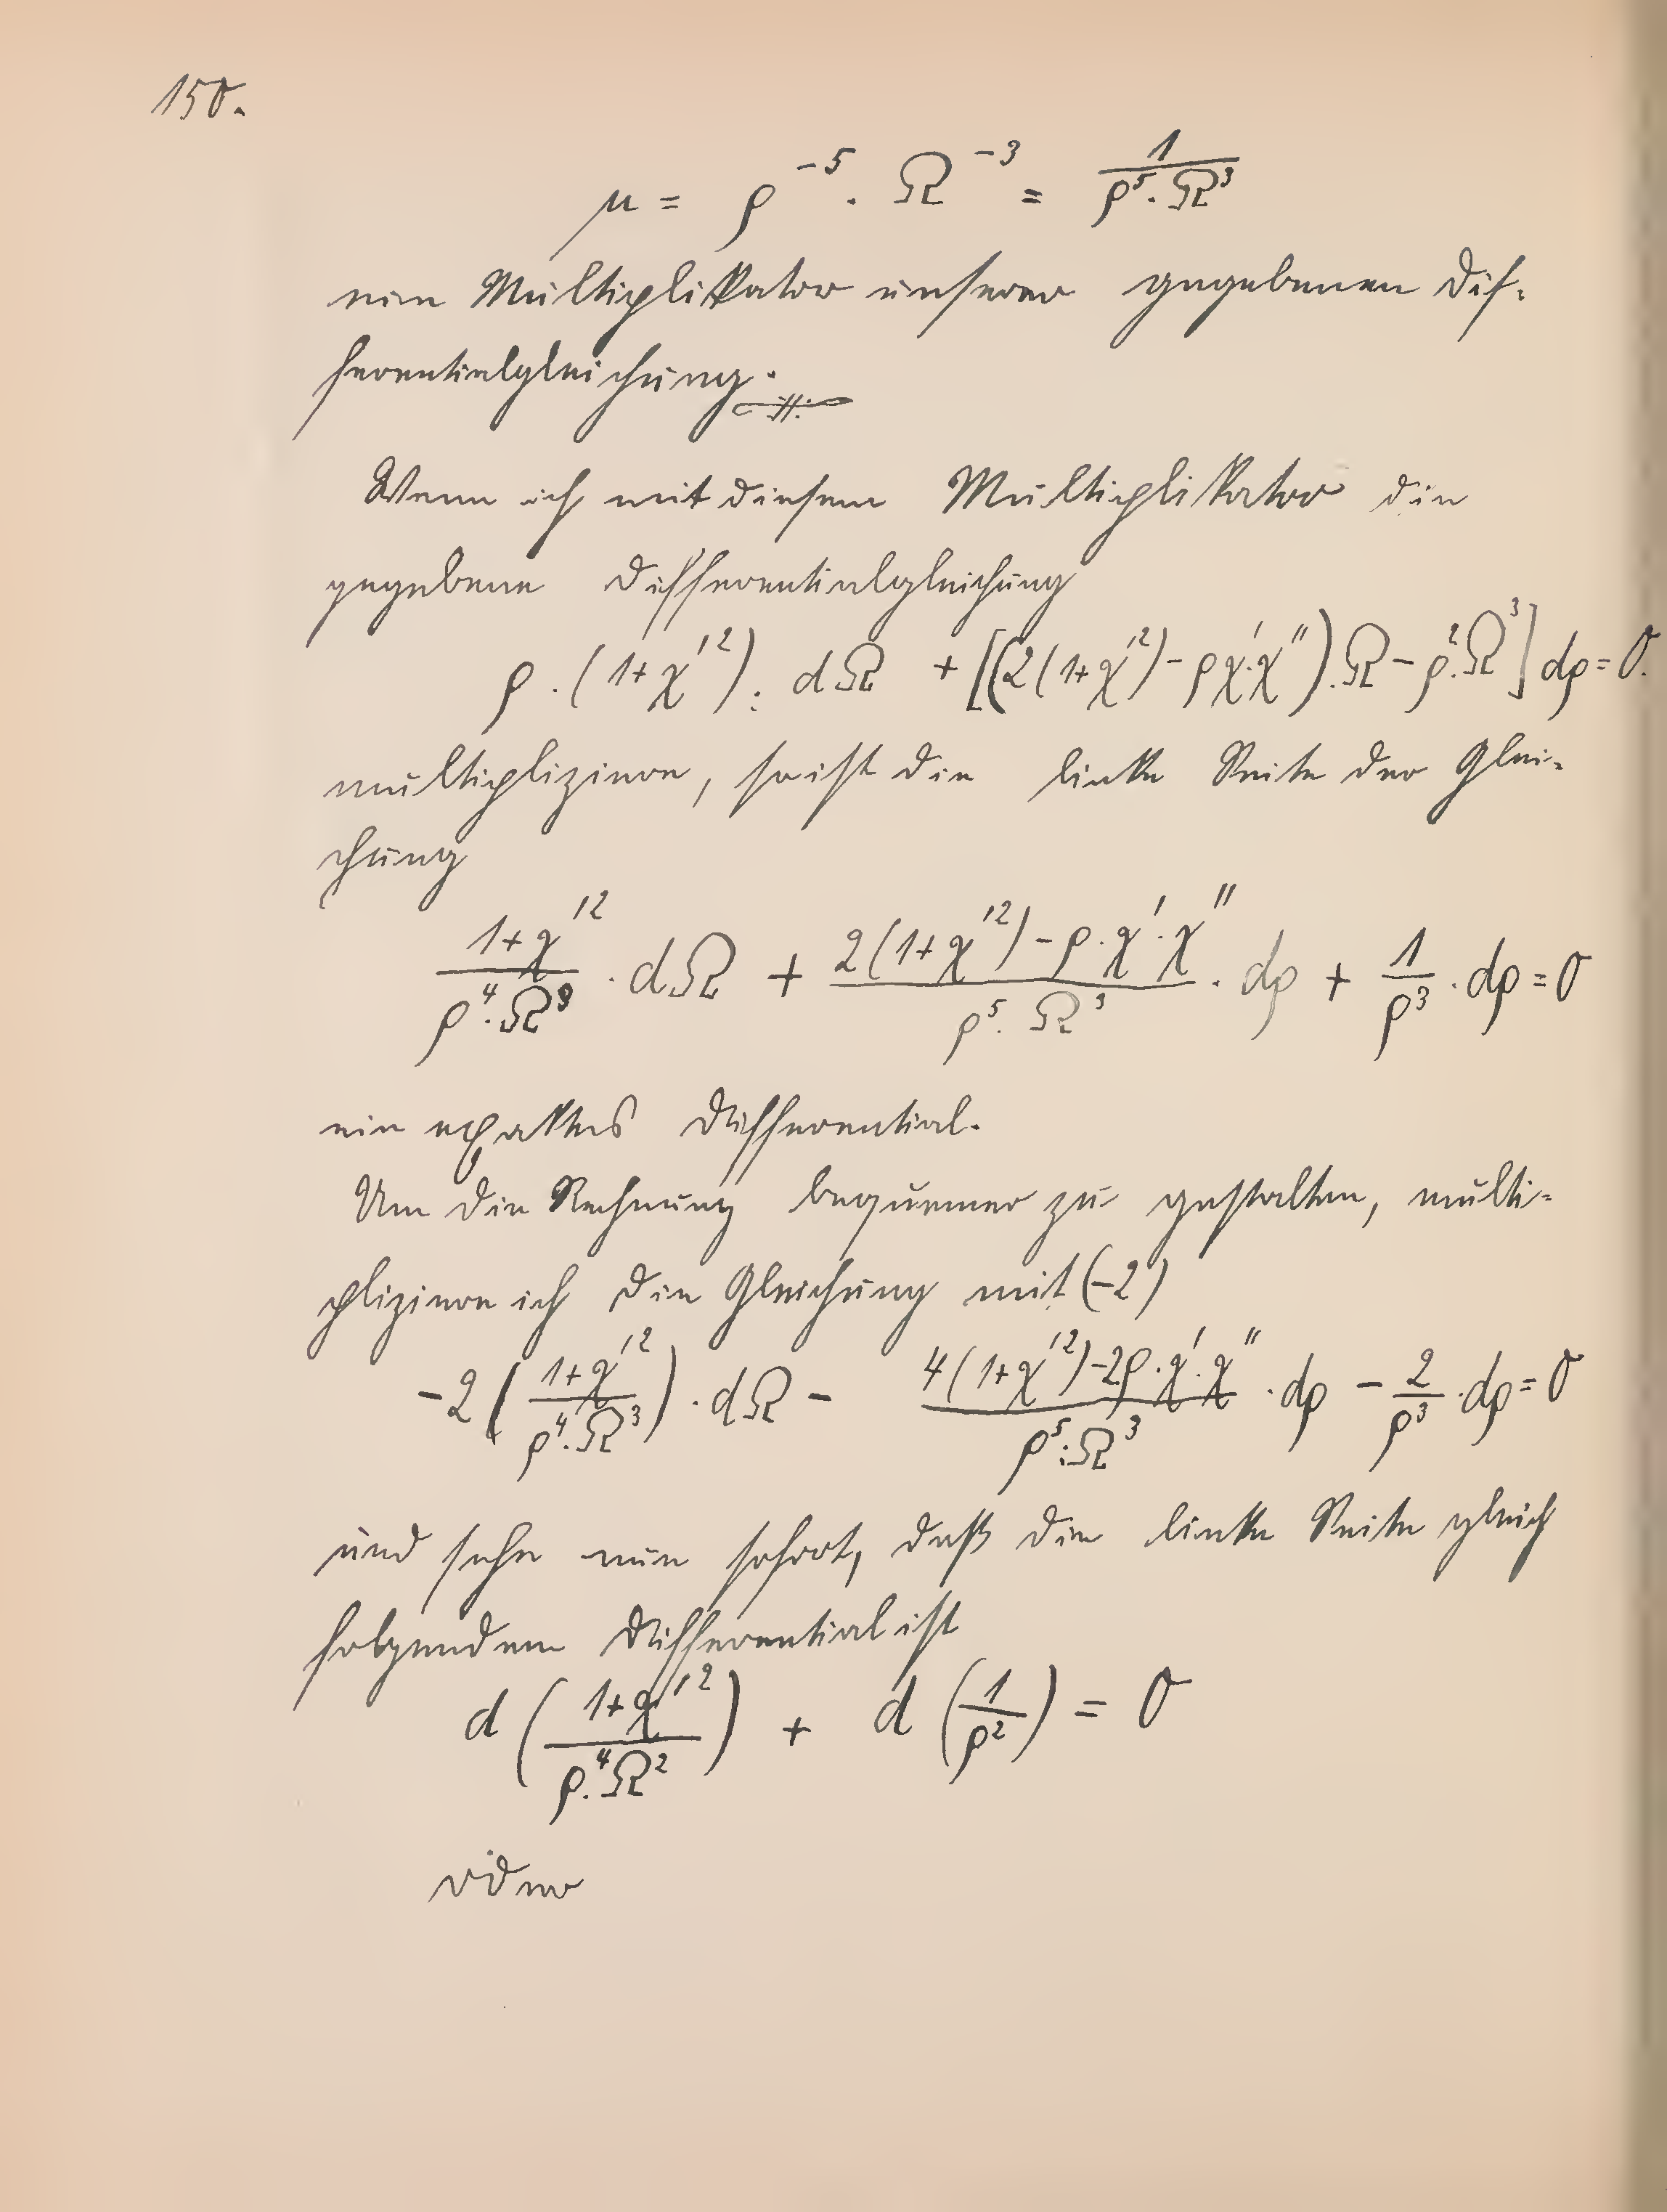 150.
μ = ρ⁻⁵ · Ω⁻³ = 1/(ρ⁵ · Ω³)
ein Multiplikator unserer gegebenen Dif-
ferentialgleichung.
Wenn ich mit diesem Multiplikator die
gegebene Differentialgleichung
ρ · (1+χ'²) · dΩ + [(2(1+χ'²) - ρχ'·χ'') · Ω - ρ²·Ω³] dρ = 0.
multipliziere, so ist die linke Seite der Glei-
chung
(1+χ'²)/(ρ⁴·Ω³) · dΩ + (2(1+χ'²) - ρ·χ'·χ'')/(ρ⁵·Ω³) · dρ + 1/ρ³ · dρ = 0
ein exaktes Differential.
Um die Rechnung bequemer zu gestalten, multi-
pliziere ich die Gleichung mit (-2)
-2((1+χ'²)/(ρ⁴·Ω³)) · dΩ - (4(1+χ'²)-2ρ·χ'·χ'')/(ρ⁵·Ω³) · dρ - 2/ρ³ · dρ = 0
und sehe nun sofort, daß die linke Seite gleich
folgendem Differential ist
d((1+χ'²)/(ρ⁴·Ω²)) + d(1/ρ²) = 0
oder